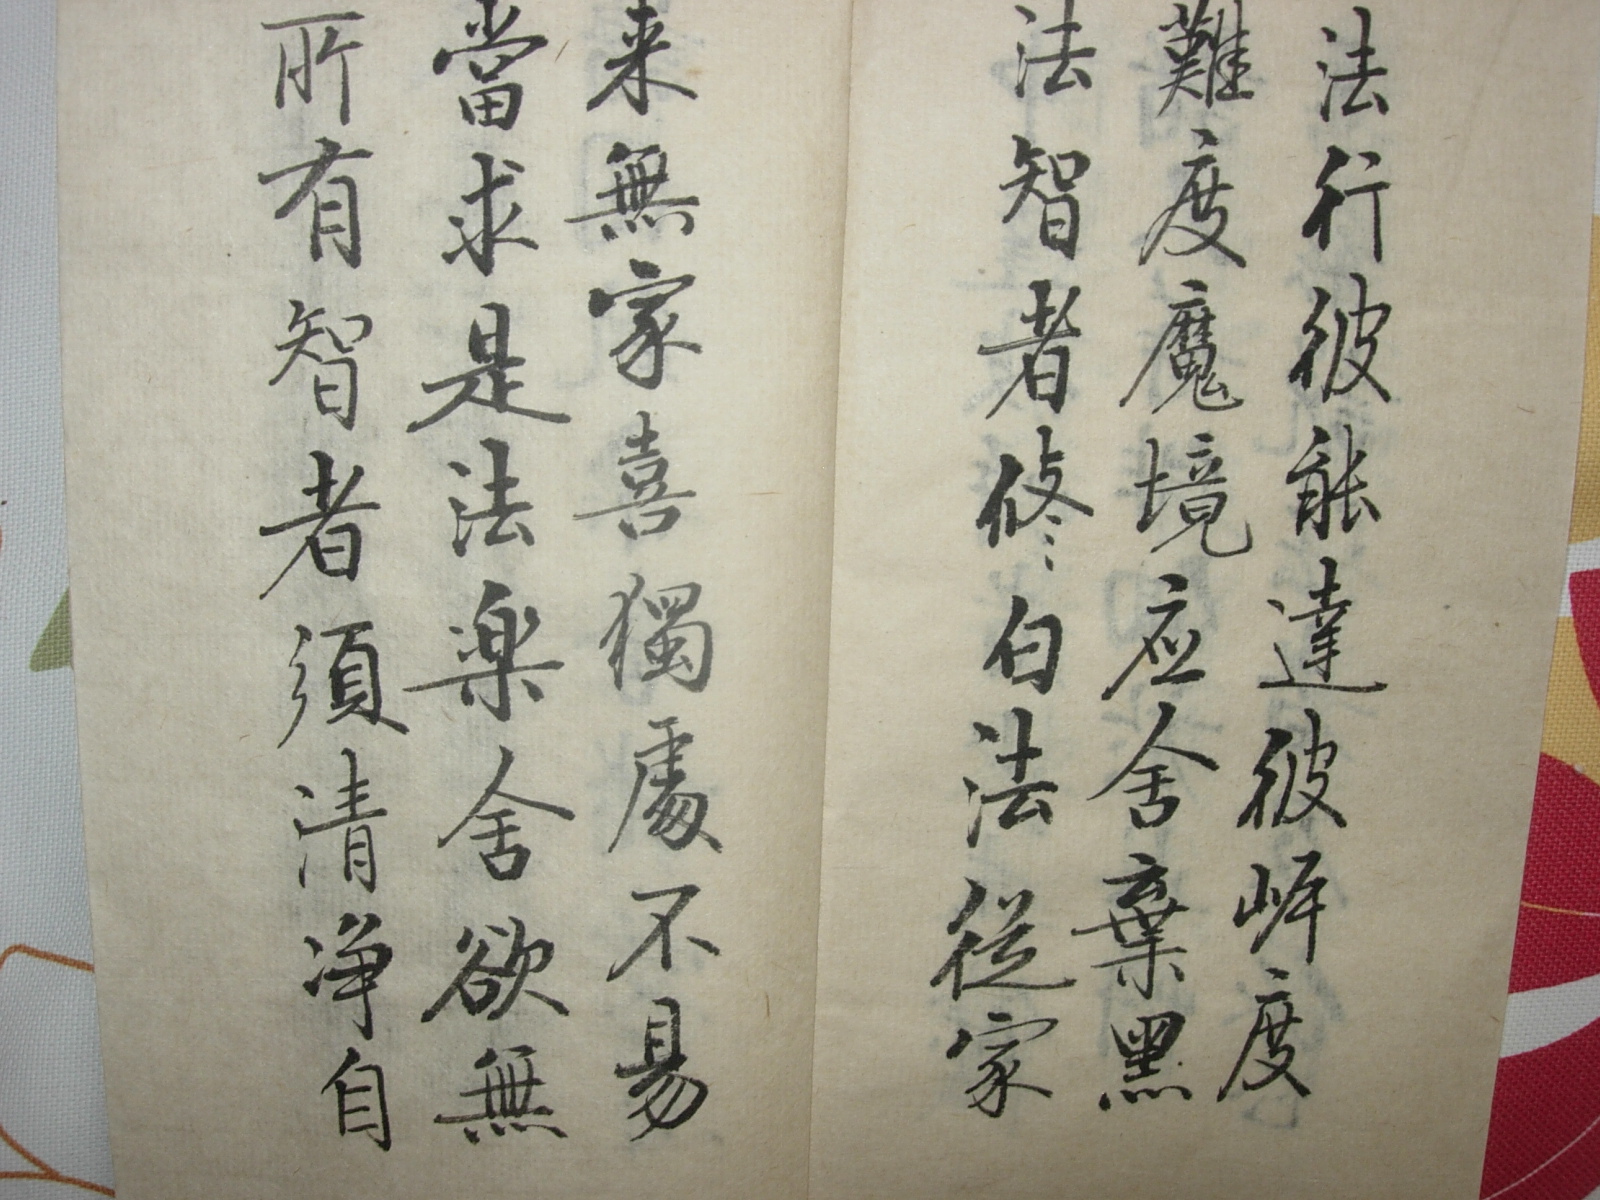 法行彼能達彼岸度
難度魔境应舍棄黑
法智者修白法従家
来無家喜獨處不易
當求是法楽舍欲無
所有智者須清净自